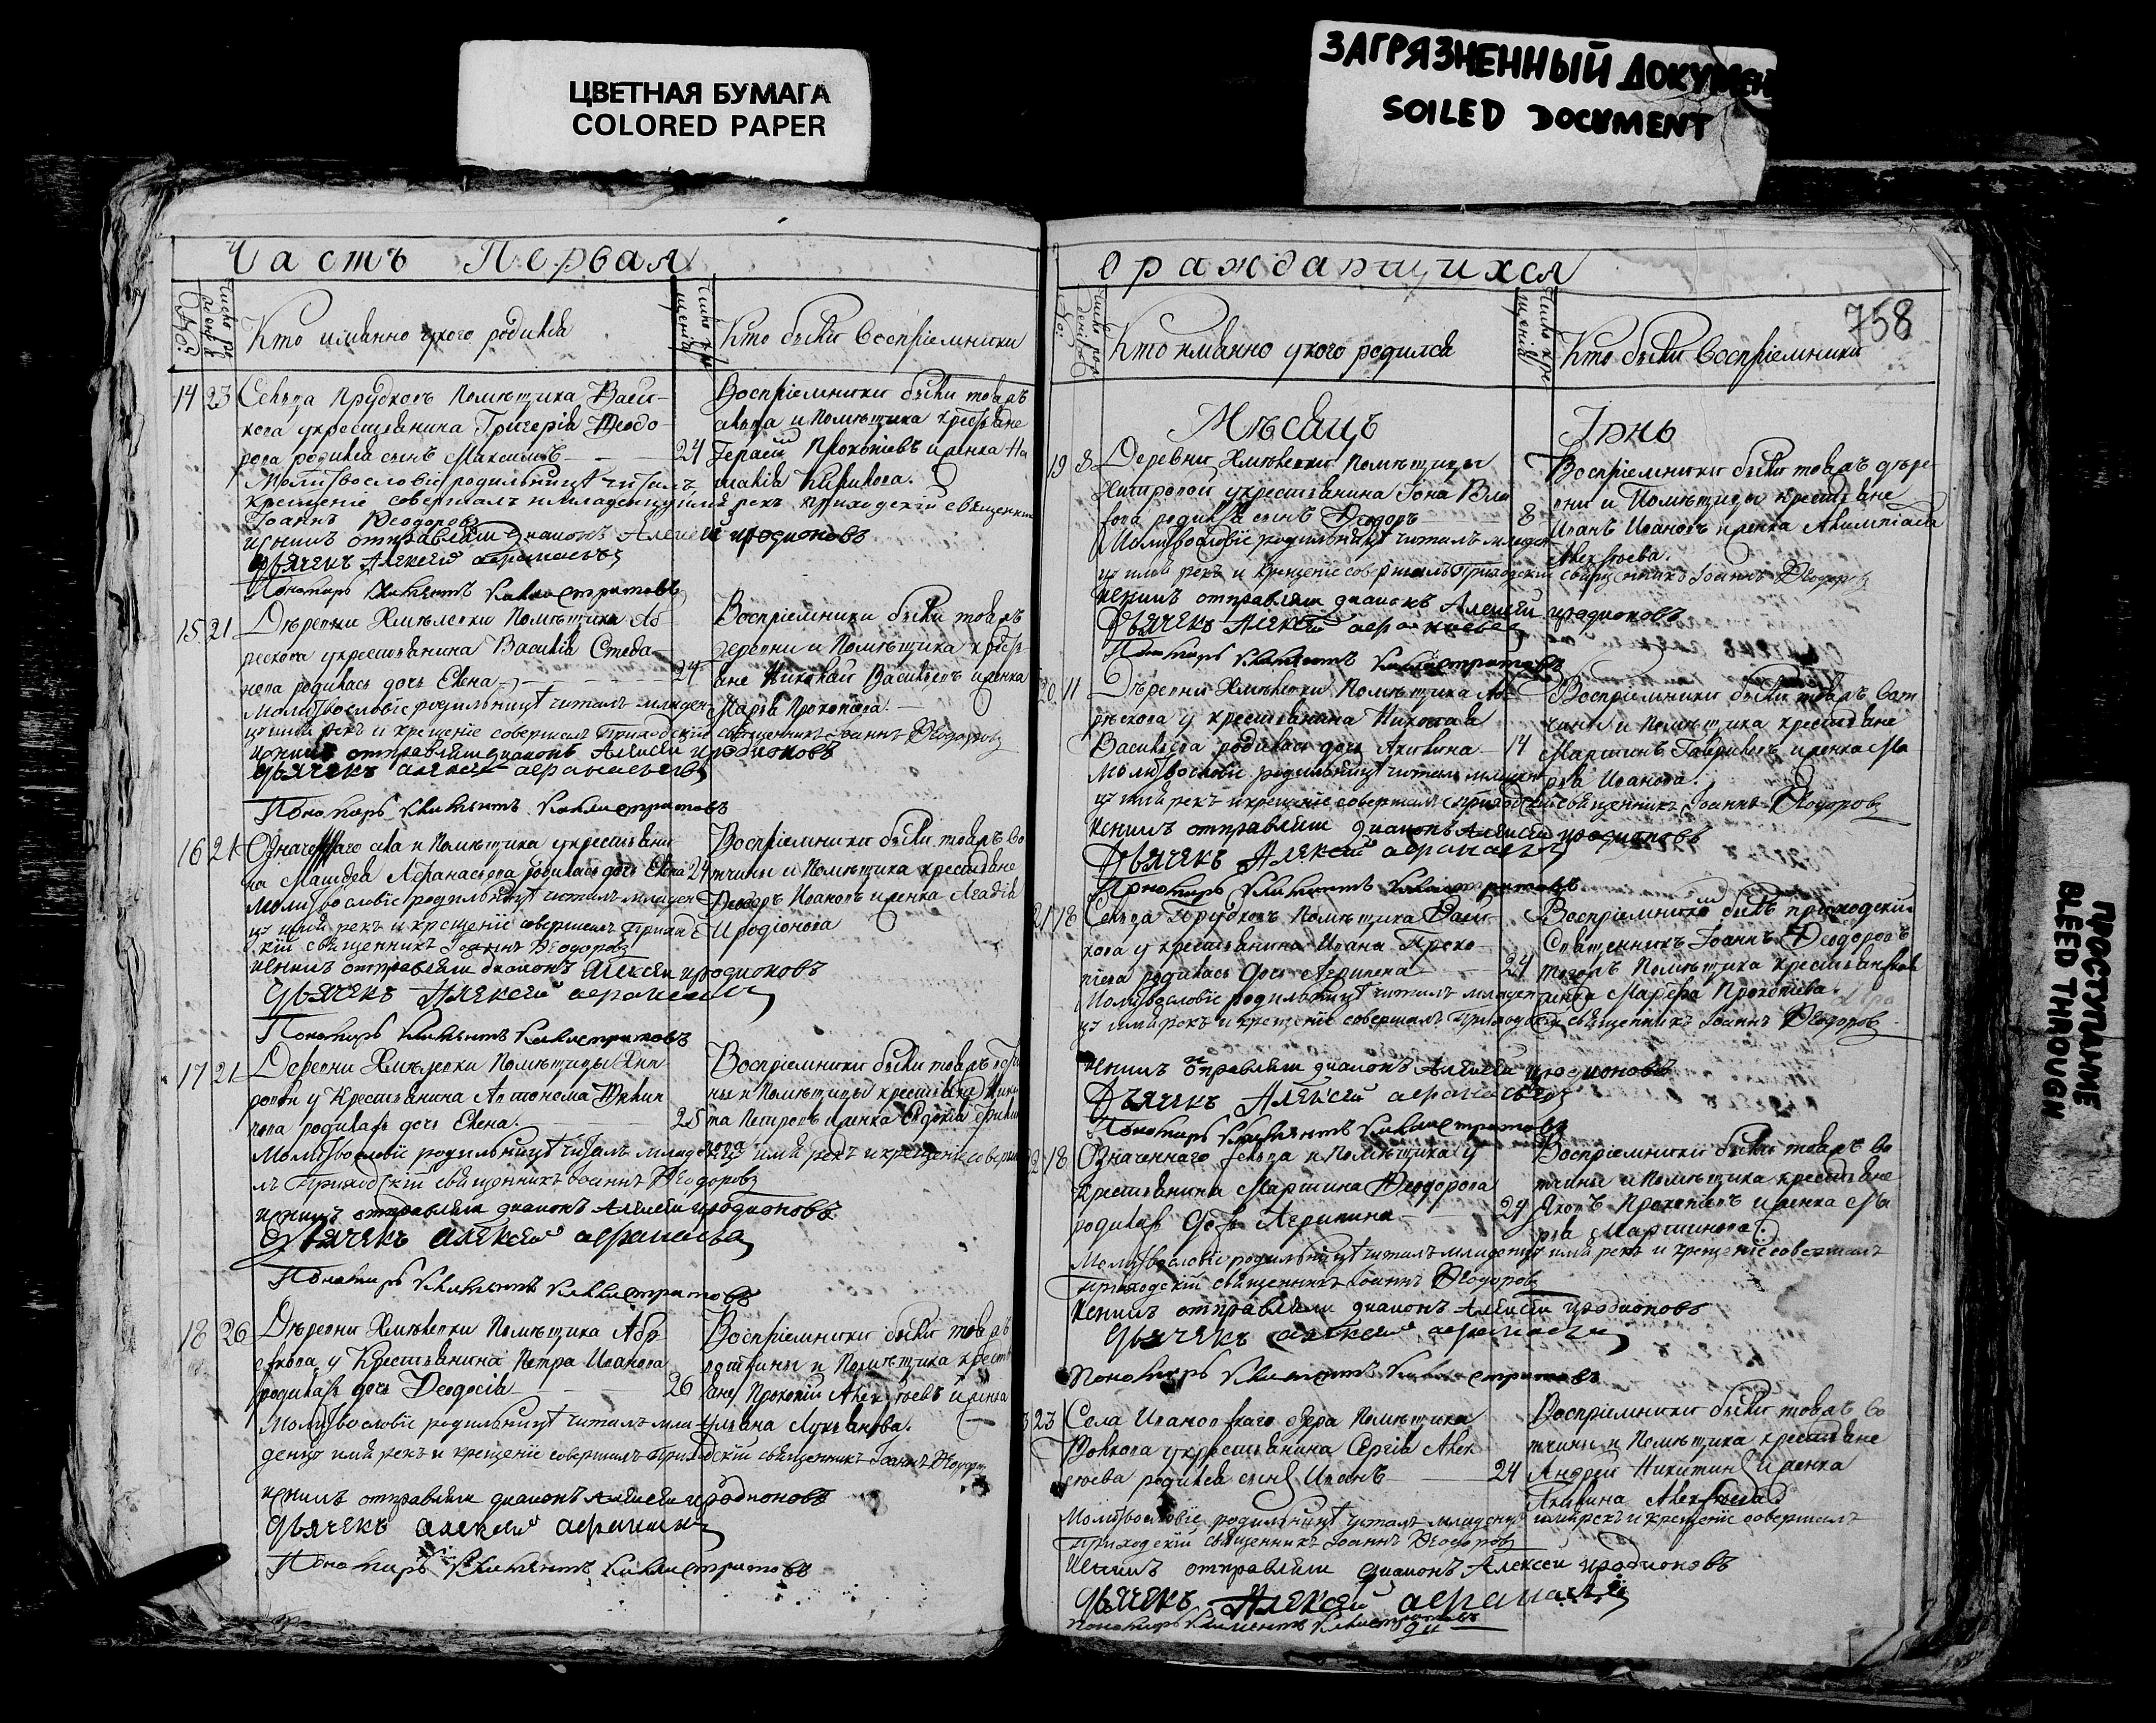 ЦВЕТНАЯ БУМАГА
COLORED PAPER
ЗАГРЯЗНЕННЫЙ ДОКУМЕН
SOILED DOCUMENT
ПРОСТУПАНИЕ
BLEED THROUGH
Часть Первая
Кто имянно у кого родился
Кто были Воспрiемники
14 23 Сельца Прудковъ Помѣщика
кова у крестьянина Григорiя Ѳеодо-
рова родился сынъ Максимъ 24
Молитвословiе родильницѣ читалъ
крещенiе совершалъ и младенцу имя рекъ приходскiй священникъ
Iоаннъ Ѳеодоровъ
при нимъ отправляли дiаконъ Алексей Иродионовъ
Дьячекъ Алексей Афанасьевъ
Пономарь Климентъ Каллистратовъ
Воспрiемники были тогожъ
сельца и Помѣщика крестьяне
Прокопiевъ и женка
15 21 Деревни Помѣщика
у крестьянина Василiя Стефа-
нова родилась дочь Елена 24
Молитвословiе родильницѣ читалъ младен-
цу имя рекъ и крещенiе совершалъ Приходскiй священникъ Iоаннъ Ѳеодоровъ
при нимъ отправляли дiаконъ Алексей Иродионовъ
Дьячекъ Алексей Афанасьевъ
Пономарь Климентъ Каллистратовъ
Воспрiемники были тогожъ
деревни и Помѣщика кресть-
яне Николай Васильевъ и женка
Марѳа Прокопiева
16 21 Означеннаго села и Помѣщика у крестьяни-
на Афанасьева родилась дочь Елена 24
Молитвословiе родильницѣ читалъ младен-
цу имя рекъ и крещенiе совершалъ Приход-
скiй священникъ Iоаннъ Ѳеодоровъ
при нимъ отправляли дiаконъ Алексей Иродионовъ
Дьячекъ Алексей Афанасьевъ
Пономарь Климентъ Каллистратовъ
Воспрiемники были тогожъ во-
тчины и Помѣщика крестьяне
Ѳеодоръ Ивановъ и женка
Иродiонова
17 21 Деревни Помѣщицы
у Крестьянина Антонома
родилась дочь Елена 25
Молитвословiе родильницѣ читалъ младенцу имя рекъ и крещенiе соверша
лъ Приходскiй священникъ Iоаннъ Ѳеодоровъ
при нимъ отправляли дiаконъ Алексей Иродионовъ
Дьячекъ Алексей Афанасьевъ
Пономарь Климентъ Каллистратовъ
Воспрiемники были тогожъ
ны и Помѣщицы крестьяне Ники
та Петровъ и женка Евдокiя
18 26 Деревни Помѣщика
у Крестьянина Петра Иванова
родилась дочь Ѳеодосiя 26
Молитвословiе родильницѣ читалъ мла-
денцу имя рекъ и крещенiе совершалъ Приходскiй священникъ Iоаннъ
при нимъ отправляли дiаконъ Алексей Иродионовъ
Дьячекъ Алексей Афанасьевъ
Пономарь Климентъ Каллистратовъ
Воспрiемники были тогожъ
вотчины и Помѣщика кресть
яне Прокопiй Алексѣевъ и женка
Ульяна Лукьянова.
о раждающихся
758
Кто имянно у кого родился
Кто были Воспрiемники
Мѣсяцъ Iюнь
19 8 Деревни Помѣщицы
у крестьянина Iона Вла
сова родился сынъ Ѳеодоръ 8
Молитвословiе родильницѣ читалъ младен
цу имя рекъ и крещенiе совершалъ Приходскiй священникъ Iоаннъ Ѳеодоровъ
при нимъ отправляли дiаконъ Алексей Иродионовъ
Дьячекъ Алексей Афанасьевъ
Пономарь Климентъ Каллистратовъ
Воспрiемники были тогожъ дере-
вни и Помѣщицы крестьяне
Иванъ Ивановъ и женка
Алексѣева.
20 11 Деревни Помѣщика
у крестьянина Николая
Васильева родилась дочь Акилина 14
Молитвословiе родильницѣ читалъ младен
цу имя рекъ и крещенiе совершалъ приходскiй священникъ Iоаннъ Ѳеодоровъ
при нимъ отправляли дiаконъ Алексей Иродионовъ
Дьячекъ Алексей Афанасьевъ
Пономарь Климентъ Каллистратовъ
Воспрiемники были тогожъ вот
чины и Помѣщика крестьяне
Мартинъ Гавриловъ и женка Ма
рѳа Иванова.
21 18 Сельца Прудковъ Помѣщика
кова у крестьянина Ивана Проко
пiева родилась дочь Агрипена 24
Молитвословiе родильницѣ читалъ младен
цу имя рекъ и крещенiе совершалъ Приходскiй священникъ Iоаннъ Ѳеодоровъ
при нимъ отправляли дiаконъ Алексей Иродионовъ
Дьячекъ Алексей Афанасьевъ
Пономарь Климентъ Каллистратовъ
Воспрiемники былъ приходскiй
Священникъ Iоаннъ Ѳеодоровъ
тогожъ Помѣщика крестьянская
женка Марѳа Прокопiева.
18 Означеннаго сельца и Помѣщика у
крестьянина Мартина Ѳеодорова
родилась дочь Агрипина 24
Молитвословiе родильницѣ читалъ младенцу имя рекъ и крещенiе совершалъ
приходскiй священникъ Iоаннъ Ѳеодоровъ
при нимъ отправляли дiаконъ Алексей Иродионовъ
Дьячекъ Алексей Афанасьевъ
Пономарь Климентъ Каллистратовъ
Воспрiемники были тогожъ во
тчины и Помѣщика крестьяне
Яковъ Прокопiевъ и женка Ма
рѳа Мартинова
23 Села Ивановскаго озера Помѣщика
Волкова у крестьянина Сергiя Алек
сѣева родился сынъ Иванъ 24
Молитвословiе родильницѣ читалъ младенцу имя рекъ и крещенiе совершалъ
Приходскiй священникъ Iоаннъ Ѳеодоровъ
при нимъ отправляли дiаконъ Алексей Иродионовъ
Дьячекъ Алексей Афанасьевъ
Пономарь Климентъ Каллистратовъ
Воспрiемники были тогожъ во
тчины и Помѣщика крестьяне
Андрей Никитин и женка
Акилина Алексѣева